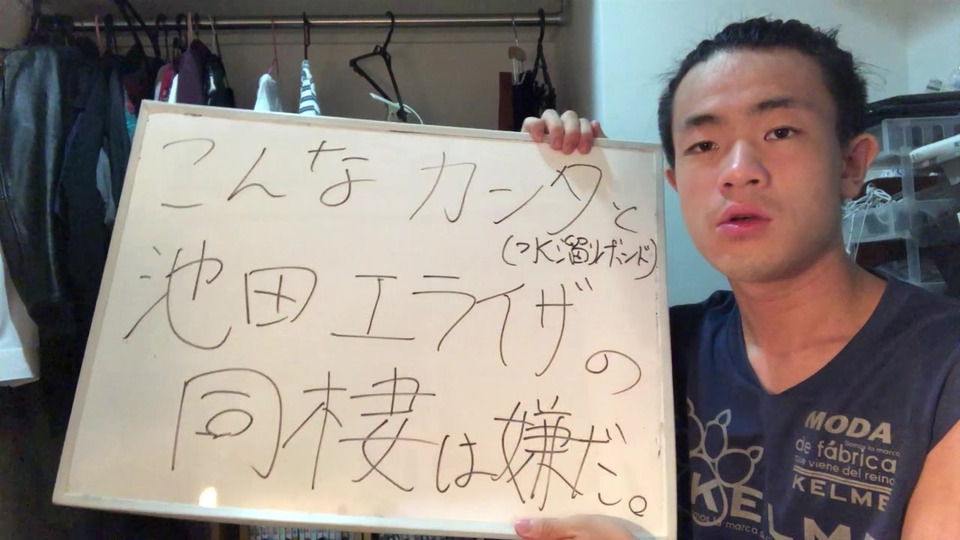 こんなカンタと
(水溜りボンド)
池田エライザの
同棲は嫌だ。
MODA
de fábrica
que viene del reino
KELME
KELME